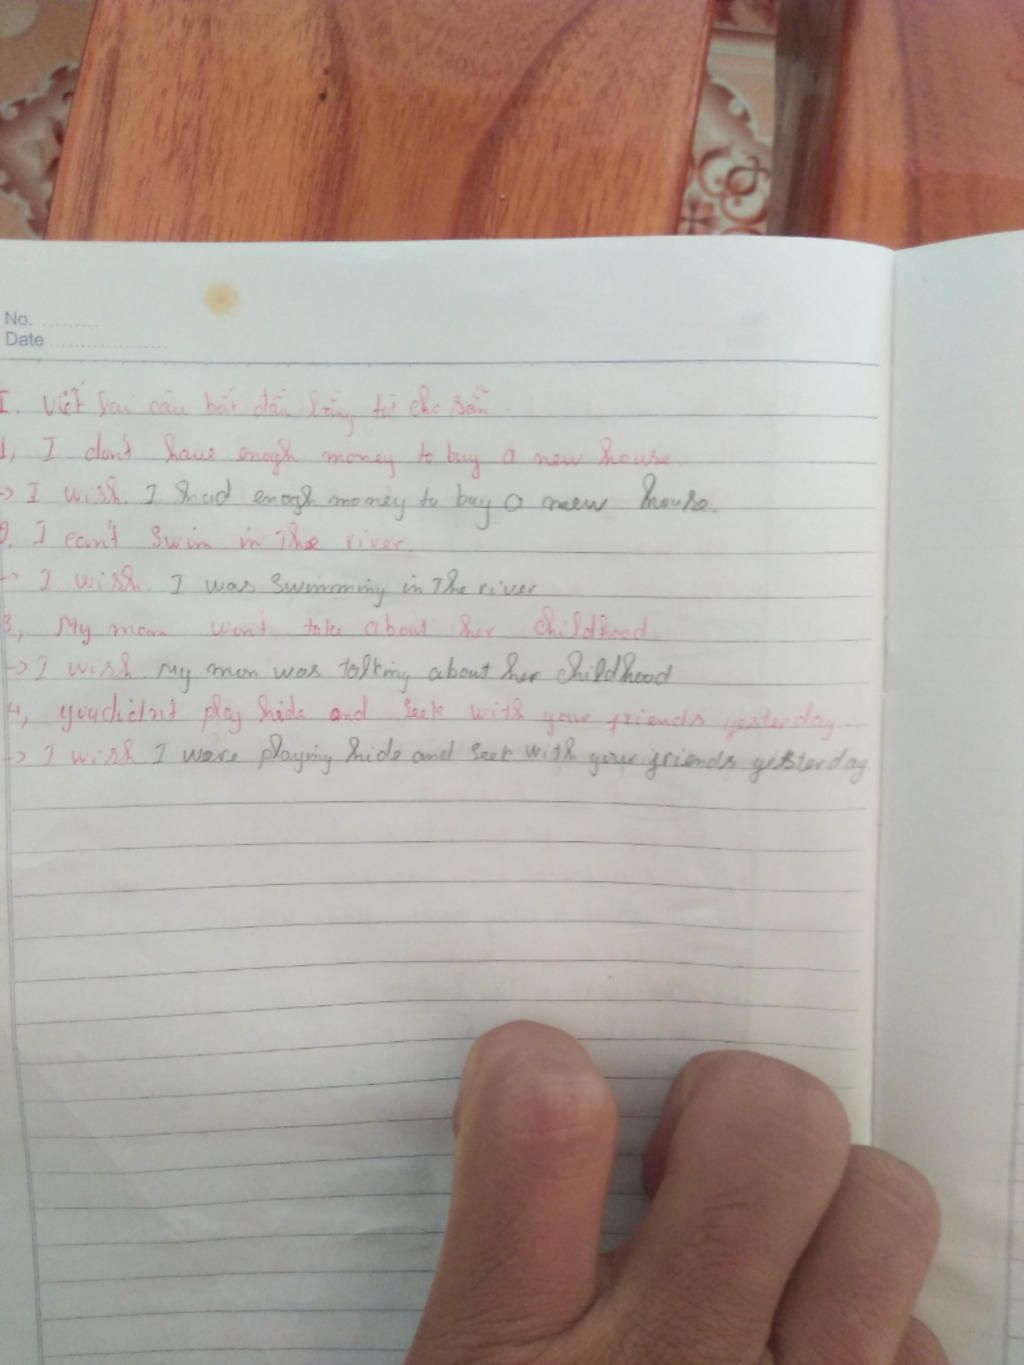 No.
Date
I. Viết lại câu bắt đầu bằng từ cho sẵn.
1, I don't have enogh money to buy a new house.
-> I wish I had enogh money to buy a new house.
2. I can't swim in The river.
-> I wish. I was swimming in The river
3, My mom won't take about her childhood.
-> I wish My mom was talking about her childhood
4, you didn't play hide and seek with your friends yesterday.
-> I wish I were playing hide and seek with your friends yesterday